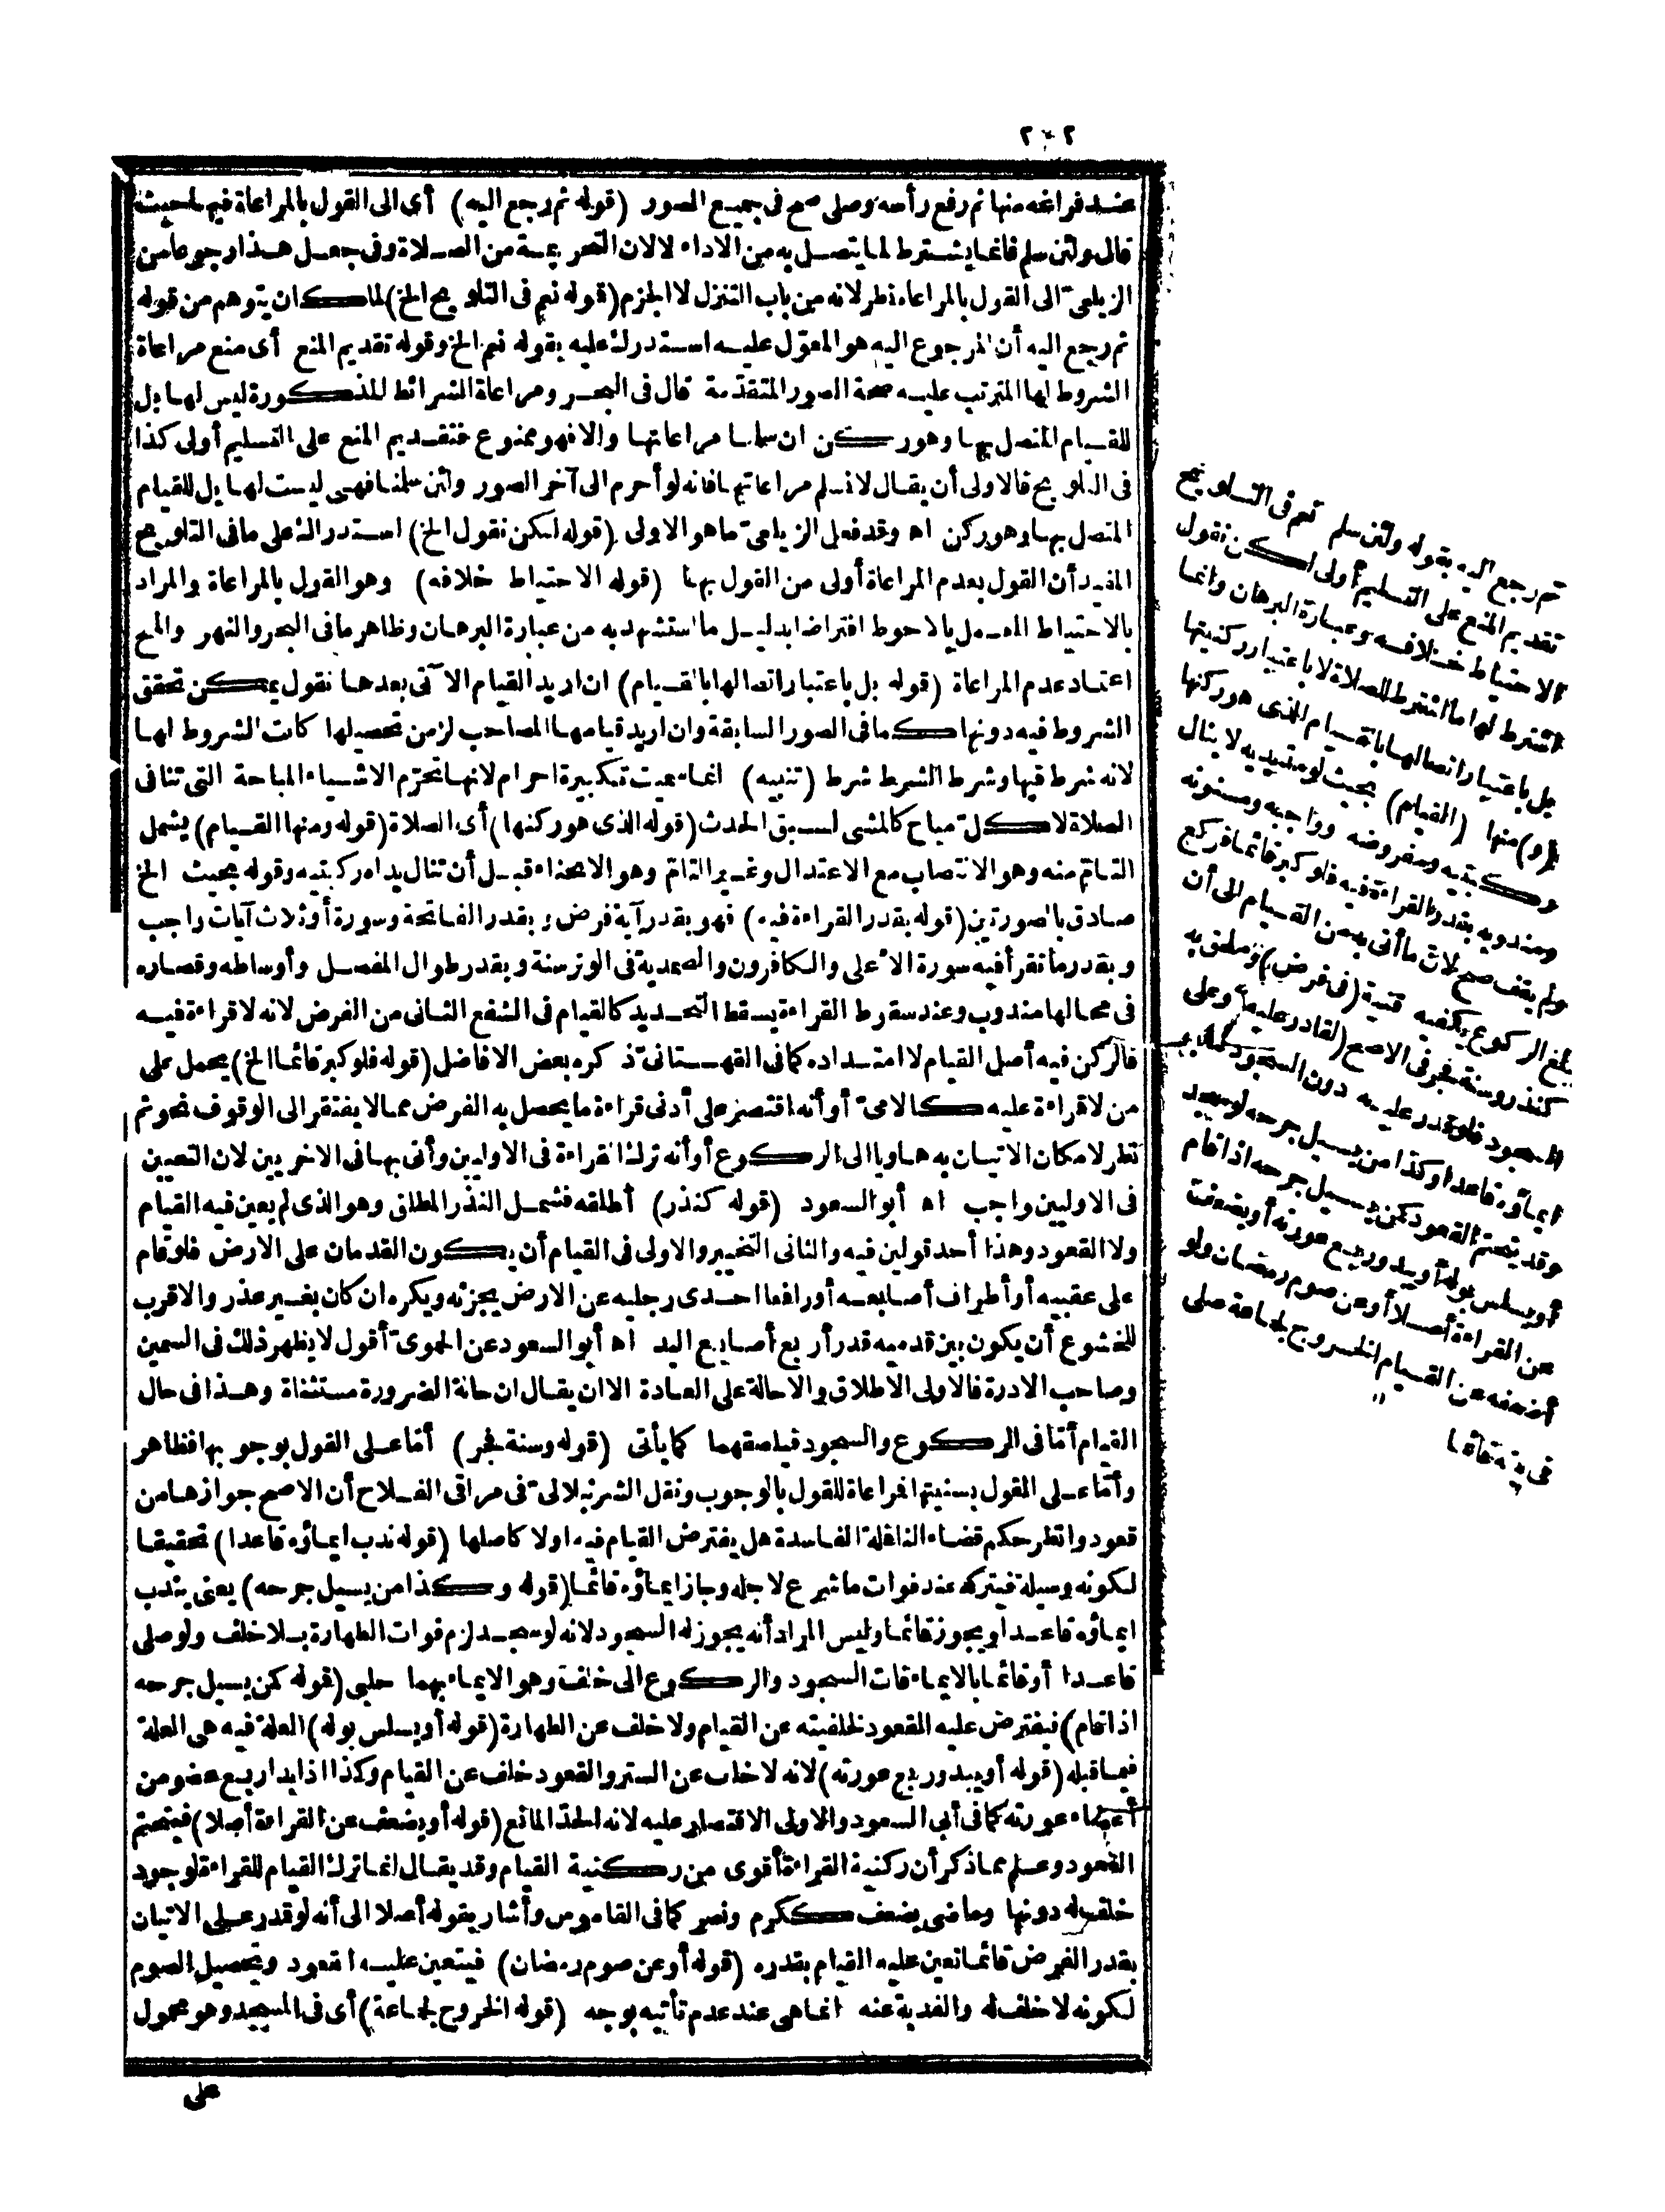 ٢٠٢
عند فراغه منها ثم رفع رأسه وصلى صح فى جميع الصور (قوله ثم رجع اليه) أى الى القول بالمراعاة فيها حيث
قال ولئن سلم فانما يشترط لما يتصل به من الاداء لا لان التحريمة من الصلاة وفى جعل هذا رجوعا من
الزيلعى الى القول بالمراعاة نظر لانه من باب التنزل لا الجزم (قوله نعم فى التلويح الخ) لما كان يتوهم من قوله
ثم رجع اليه أن المرجوع اليه هو المعوّل عليه استدرك عليه بقوله نعم الخ وقوله تقديم المنع أى منع مراعاة
الشروط لها المترتب عليه صحة الصور المتقدّمة قال فى البحر ومراعاة الشرائط المذكورة ليس لها بل
للقيام المتصل بها وهو ركن ان سلمنا مراعاتها والا فهو ممنوع فتقديم المنع على التسليم أولى كذا
فى التلويح فالاولى أن يقال لا نسلم مراعاتها فانه لو أحرم الى آخر الصور ولئن سلمنا فهى ليست لها بل للقيام
المتصل بها وهو ركن اه وقد فعل الزيلعى ما هو الاولى (قوله لكن نقول الخ) استدراك على ما فى التلويح
المفيد أن القول بعدم المراعاة أولى من القول بها (قوله الاحتياط خلافه) وهو القول بالمراعاة والمراد
بالاحتياط العمل بالاحوط افتراضا بدليل ما استشهد به من عبارة البرهان وظاهر ما فى البحر والنهر والمنح
اعتماد عدم المراعاة (قوله بل باعتبار اتصالها بالقيام) ان اريد القيام الآتى بعدها نقول يمكن تحقق
الشروط فيه دونها كما فى الصور السابقة وان اريد قيامها المصاحب لزمن تحصيلها كانت الشروط لها
لانه شرط فيها وشرط الشرط شرط (تنبيه) انما سميت تكبيرة احرام لانها تحرّم الاشياء المباحة التى تنافى
الصلاة لا كلّ مباح كالمشى لسبق الحدث (قوله الذى هو ركنها) أى الصلاة (قوله ومنها القيام) يشمل
التامّ منه وهو الانتصاب مع الاعتدال وغير التامّ وهو الانحناء قبل أن تنال يداه ركبتيه وقوله بحيث الخ
صادق بالصورتين (قوله بقدر القراءة فيه) فهو بقدر آية فرض وبقدر الفاتحة وسورة أو ثلاث آيات واجب
وبقدر ما تقرأ فيه سورة الاعلى والكافرون والصمدية فى الوتر سنة وبقدر طوال المفصل وأوساطه وقصاره
فى محالها مندوب وعند سقوط القراءة يسقط التحديد كالقيام فى الشفع الثانى من الفرض لانه لا قراءة فيه
فالركن فيه أصل القيام لا امتداده كما فى القهستانىّ ذكره بعض الافاضل (قوله فلو كبر قائما الخ) يحمل على
من لا قراءة عليه كالامىّ أو أنه اقتصر على أدنى قراءة ما يحصل به الفرض مما لا يفتقر الى الوقوف نحو ثم
نظر لامكان الاتيان به هاويا الى الركوع أو أنه ترك القراءة فى الاوليين وأتى بها فى الاخريين لان التعيين
فى الاوليين واجب اه أبو السعود (قوله كنذر) أطلقه فشمل النذر المطلق وهو الذى لم يعين فيه القيام
ولا القعود وهذا أحد قولين فيه والثانى التخيير والاولى فى القيام أن يكون القدمان على الارض فلو قام
على عقبيه أو أطراف أصابعه أو رافعا احدى رجليه عن الارض يجزئه ويكره ان كان بغير عذر والاقرب
للخشوع أن يكون بين قدميه قدر أربع أصابع اليد اه أبو السعود عن الحموىّ أقول لا يظهر ذلك فى السمين
وصاحب الادرة فالاولى الاطلاق والاحالة على العادة الا ان يقال ان حالة الضرورة مستثناة وهذا فى حال
القيام أمّا فى الركوع والسجود فيلصقهما كما يأتى (قوله وسنة فجر) أمّا على القول بوجوبها فظاهر
وأمّا على القول بسنيتها فمراعاة للقول بالوجوب ونقل الشرنبلالىّ فى مراقى الفلاح أن الاصح جوازها من
قعود وانظر حكم قضاء النافلة الفاسدة هل يفترض القيام فيه اولا كاصلها (قوله ندب ايماؤه قاعدا) تحقيقا
لكونه وسيلة فيتركه عند فوات ما شرع لاجله وجاز ايماؤه قائما (قوله وكذا من يسيل جرحه) يعنى يندب
ايماؤه قاعدا ويجوز قائما وليس المراد أنه يجوز له السجود لانه لو سجد لزم فوات الطهارة بلا خلف ولو صلى
قاعدا أو قائما بالايماء فات السجود والركوع الى خلف وهو الايماء بهما حلبى (قوله كمن يسيل جرحه
اذا قام) فيفترض عليه القعود لخلفيته عن القيام ولا خلف عن الطهارة (قوله أو يسلس بوله) العلة فيه هى العلة
فيما قبله (قوله أو يبدو ربع عورته) لانه لا خلف عن الستر والقعود خلف عن القيام وكذا اذا بدا ربع عضو من
أعضاء عورته كما فى أبى السعود والاولى الاقتصار عليه لانه الحدّ المانع (قوله أو يضعف عن القراءة أصلا) فيتحتم
القعود وعلم مما ذكر أن ركنية القراءة أقوى من ركنية القيام وقد يقال انما ترك القيام للقراءة لوجود
خلف له دونها وماضى يضعف ككرم ونصر كما فى القاموس وأشار بقوله أصلا الى أنه لو قدر على الاتيان
بقدر الفرض قائما تعين عليه القيام بقدره (قوله أو عن صوم رمضان) فيتعين عليه القعود وتحصيل الصوم
لكونه لا خلف له والفدية عنه انما هى عند عدم تأتيه بوجه (قوله الخروج لجماعة) أى فى المسجد وهو محمول
على
ثم رجع اليه بقوله ولئن سلم نعم فى التلويح
تقديم المنع على التسليم أولى لكن نقول
الاحتياط خلافه وعبارة البرهان وانما
اشترط لها ما اشترط للصلاة لا باعتبار ركنيتها
بل باعتبار اتصالها بالقيام الذى هو ركنها
(و) منها (القيام) بحيث لو مدّ يديه لا ينال
ركبتيه ومفروضه وواجبه ومسنونه
ومندوبه بقدر القراءة فيه فلو كبر قائما فركع
ولم يقف صح لان ما أتى به من القيام الى أن
يبلغ الركوع يكفيه قنية (فى فرض) وملحق به
كنذر وسنة فجر فى الاصح (لقادر عليه) وعلى
السجود فلو قدر عليه دون السجود ندب
ايماؤه قاعدا وكذا من يسيل جرحه لو سجد
وقد يتحتم القعود كمن يسيل جرحه اذا قام
أو يسلس بوله أو يبدو ربع عورته أو يضعف
عن القراءة أصلا أو عن صوم رمضان ولو
أضعفه عن القيام الخروج لجماعة صلى
فى بيته قائما